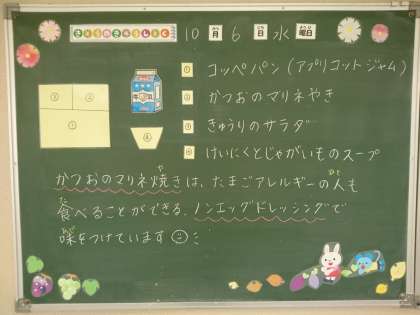 きょうのきゅうしょく 10月6日水曜日
① コッペパン(アプリコットジャム)
② かつおのマリネやき
③ きゅうりのサラダ
④ けいにくとじゃがいものスープ
② ③
①
牛乳
④
かつおのマリネ焼きは、たまごアレルギーの人も
食べることができる、ノンエッグドレッシングで
味をつけています